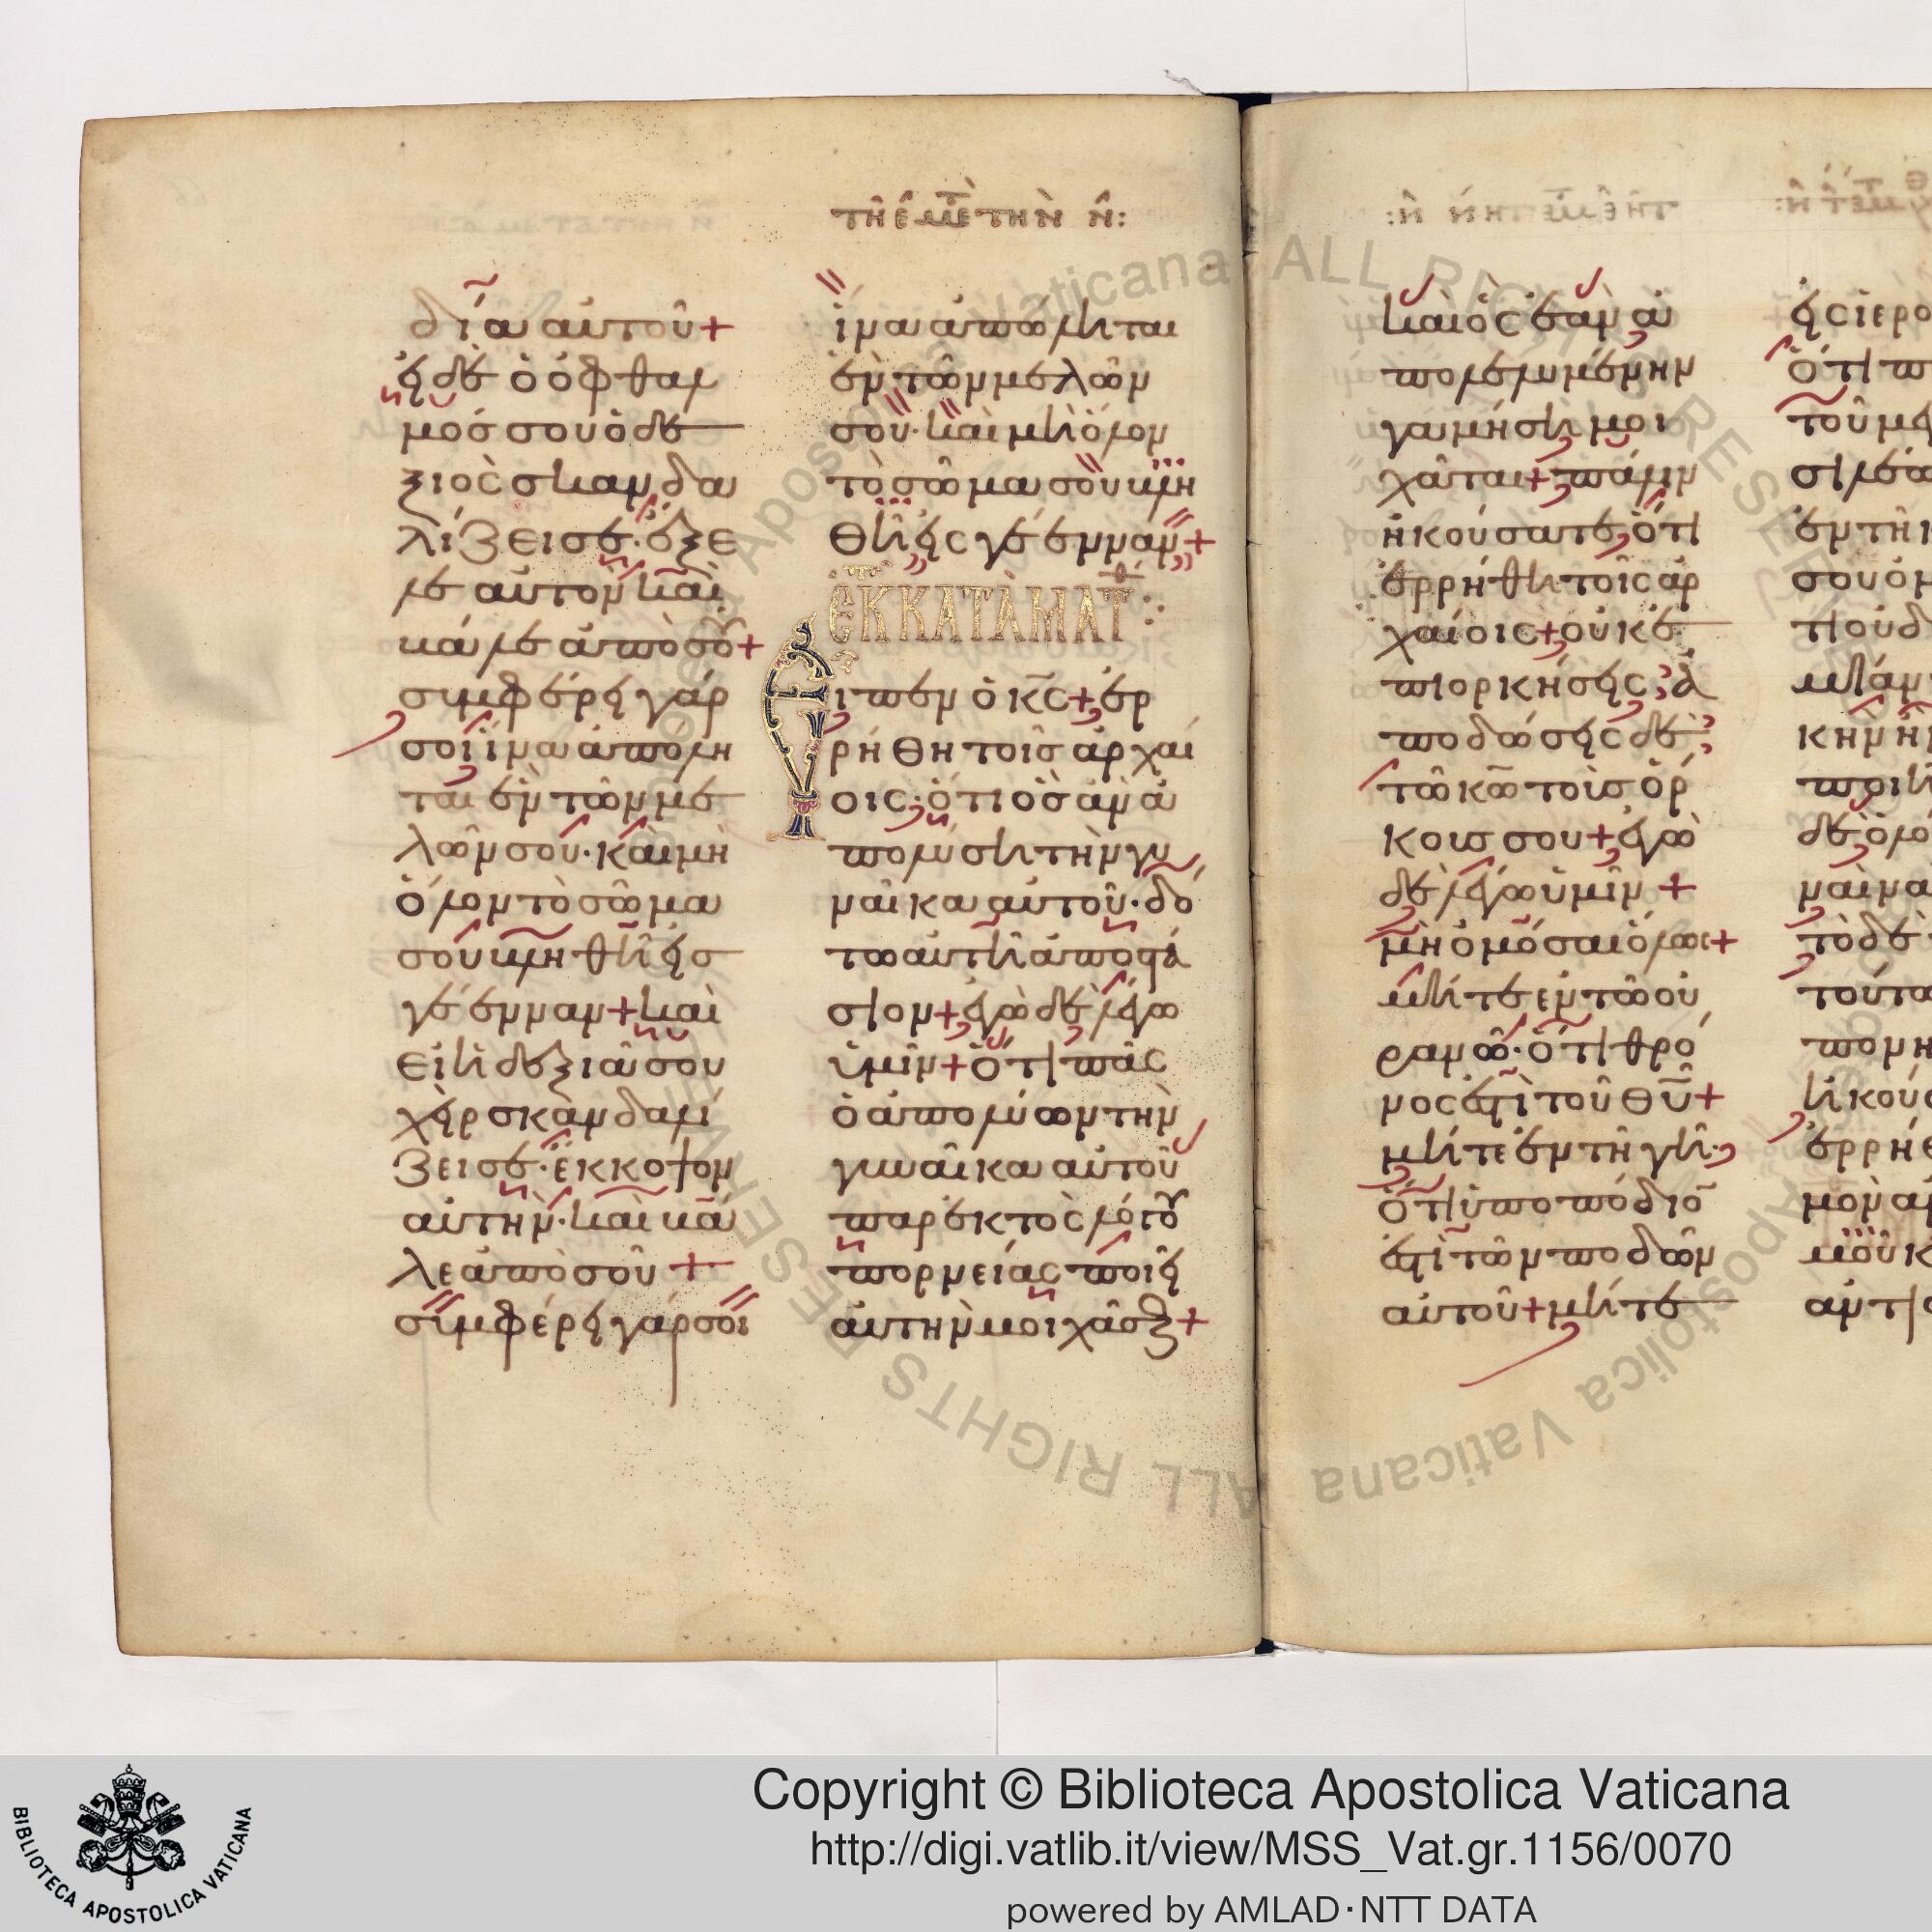 τῆ ε̂ με τὴν ν̂:
δία αὐτοῦ+
εἰ δὲ ὁ ὀφθαλ
μόσ σου ὁ δε
ξιὸς σκανδα
λίζει σε· ἔξε
λε αὐτὸν καὶ
βάλε ἀπὸ σοῦ+
συμφέρει γάρ
σοι ἵνα ἀπόλη
ται ἓν τῶν με
λῶν σου· καὶ μὴ
ὅλον τὸ σῶμα
σου βληθῆ εἰσ
γέενναν+ καὶ
εἰ ἡ δεξιά σου
χεὶρ σκανδαλί
ζει σε· ἔκκοψον
αὐτὴν· καὶ βά
λε ἀπὸ σοῦ +
συμφέρει γάρ σοι
ἵνα ἀπόληται
ἓν τῶν μελῶν
σου· καὶ μὴ ὅλον
τὸ σῶμα σου βλη
θῆ εἰς γέενναν+
ἐκ κατὰ Ματθ:
Εἶπεν ὁ κς+ ἐρ
ρήθη τοῖσ ἀρχαί
οις· ὅτι ὃσ ἂν ἀ
πολύση τὴν γυ
ναῖκα αὐτοῦ· δό
τω αὐτῆ ἀποστά
σιον+ ἐγὼ δὲ λέγω
ὑμῖν+ ὅτι πᾶς
ὁ ἀπολύων τὴν
γυναῖκα αὐτοῦ
παρεκτὸς λόγου
πορνείας ποιεῖ
αὐτὴν μοιχᾶσθαι+
καὶ ὃς ἐὰν ἀ
πολελυμένην
γαμήση μοι
χᾶται+ πάλιν
ἠκούσατε, ὅτι
ἐρρήθη τοῖς ἀρ
χαίοις+ οὐκ ἐ
πιορκήσεις, ἀ
ποδώσεις δὲ
τῶ κω τοὺσ ὅρ
κουσ σου+ ἐγὼ
δὲ λέγω ὑμῖν +
μὴ ὀμόσαι ὅλως+
μήτε ἐν τῶ οὐ
ρανῶ· ὅτι θρό
νος ἐστὶ τοῦ θυ+
μήτε ἐν τῆ γῆ·
ὅτι ὑποπόδιο
ἐστὶ τῶν ποδῶν
αὐτοῦ+ μήτε
εἰς ἱερο
ὅτι π
τοῦ με
σιλέω
ἐν τῆ κ
σου ὀμ
μίαν
ποιῆ
δὲ ὁ λό
ναὶ να
τὸ δὲ
τούτω
ἠκούσ
ἐρρήθ
μὸν ἀ
ἀντι
Copyright © Biblioteca Apostolica Vaticana
http://digi.vatlib.it/view/MSS_Vat.gr.1156/0070
powered by AMLAD·NTT DATA
BIBLIOTECA APOSTOLICA VATICANA